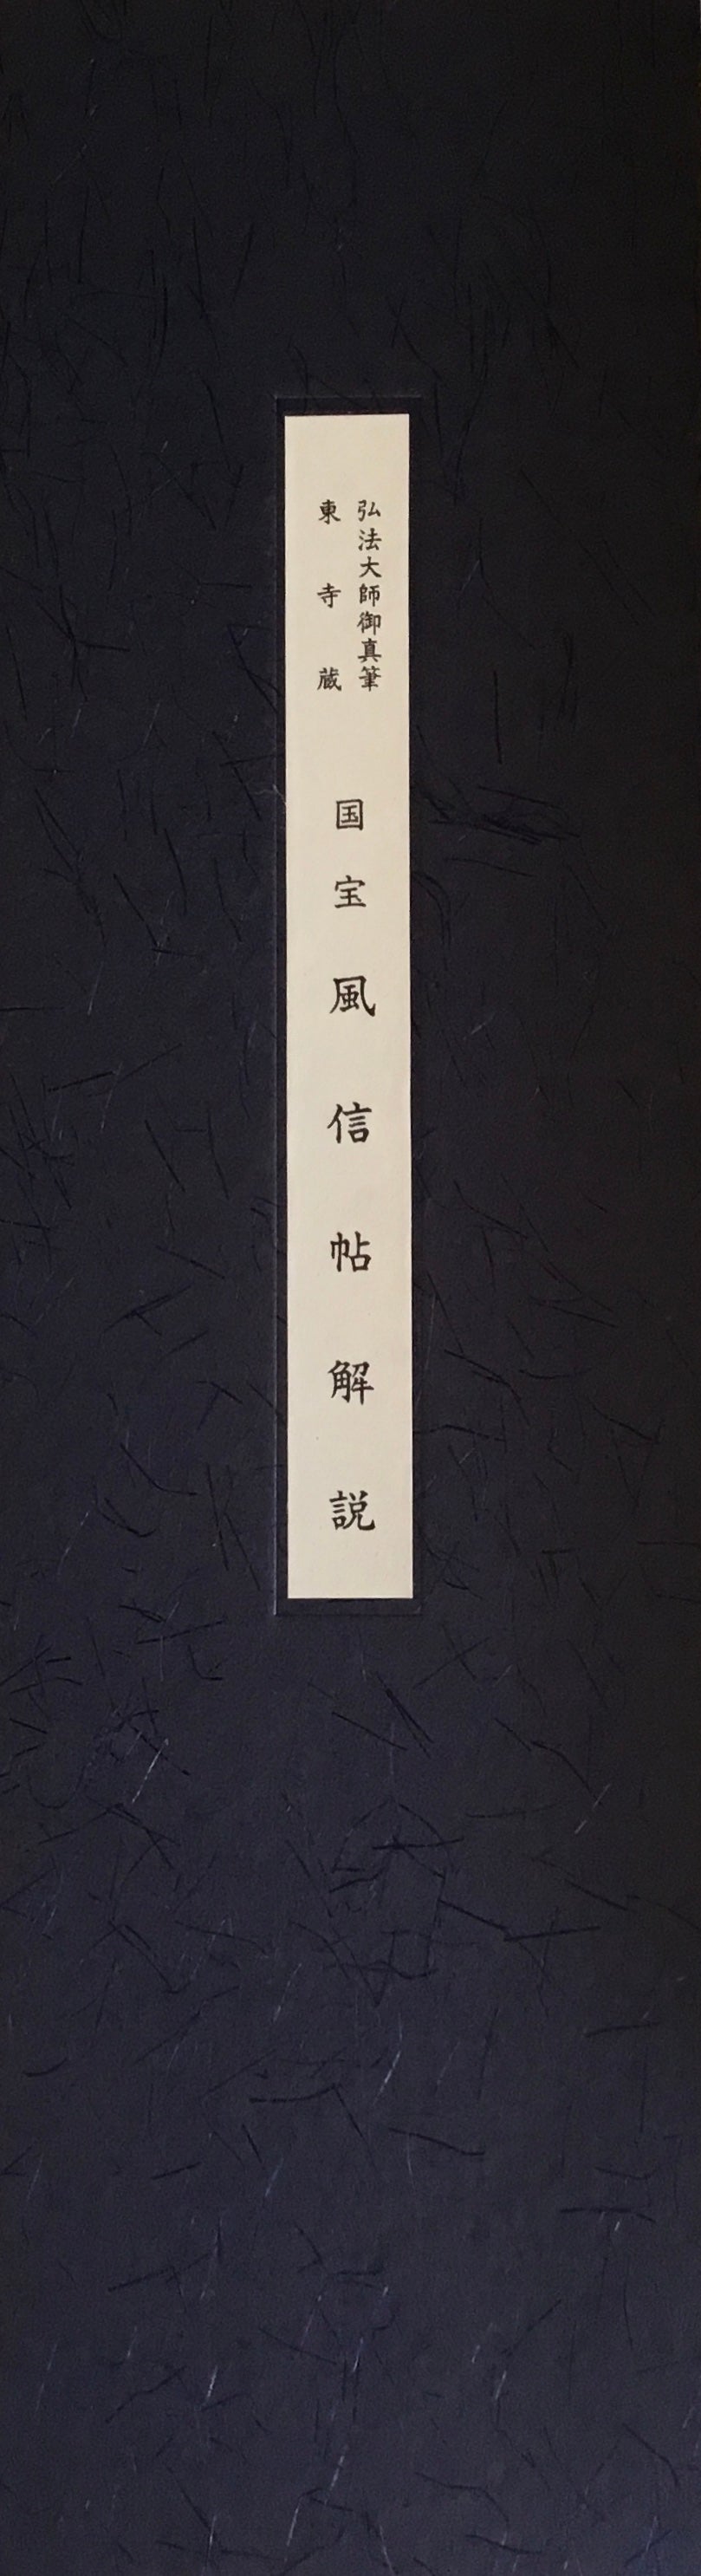 弘法大師御真筆
東寺蔵
国宝風信帖解説